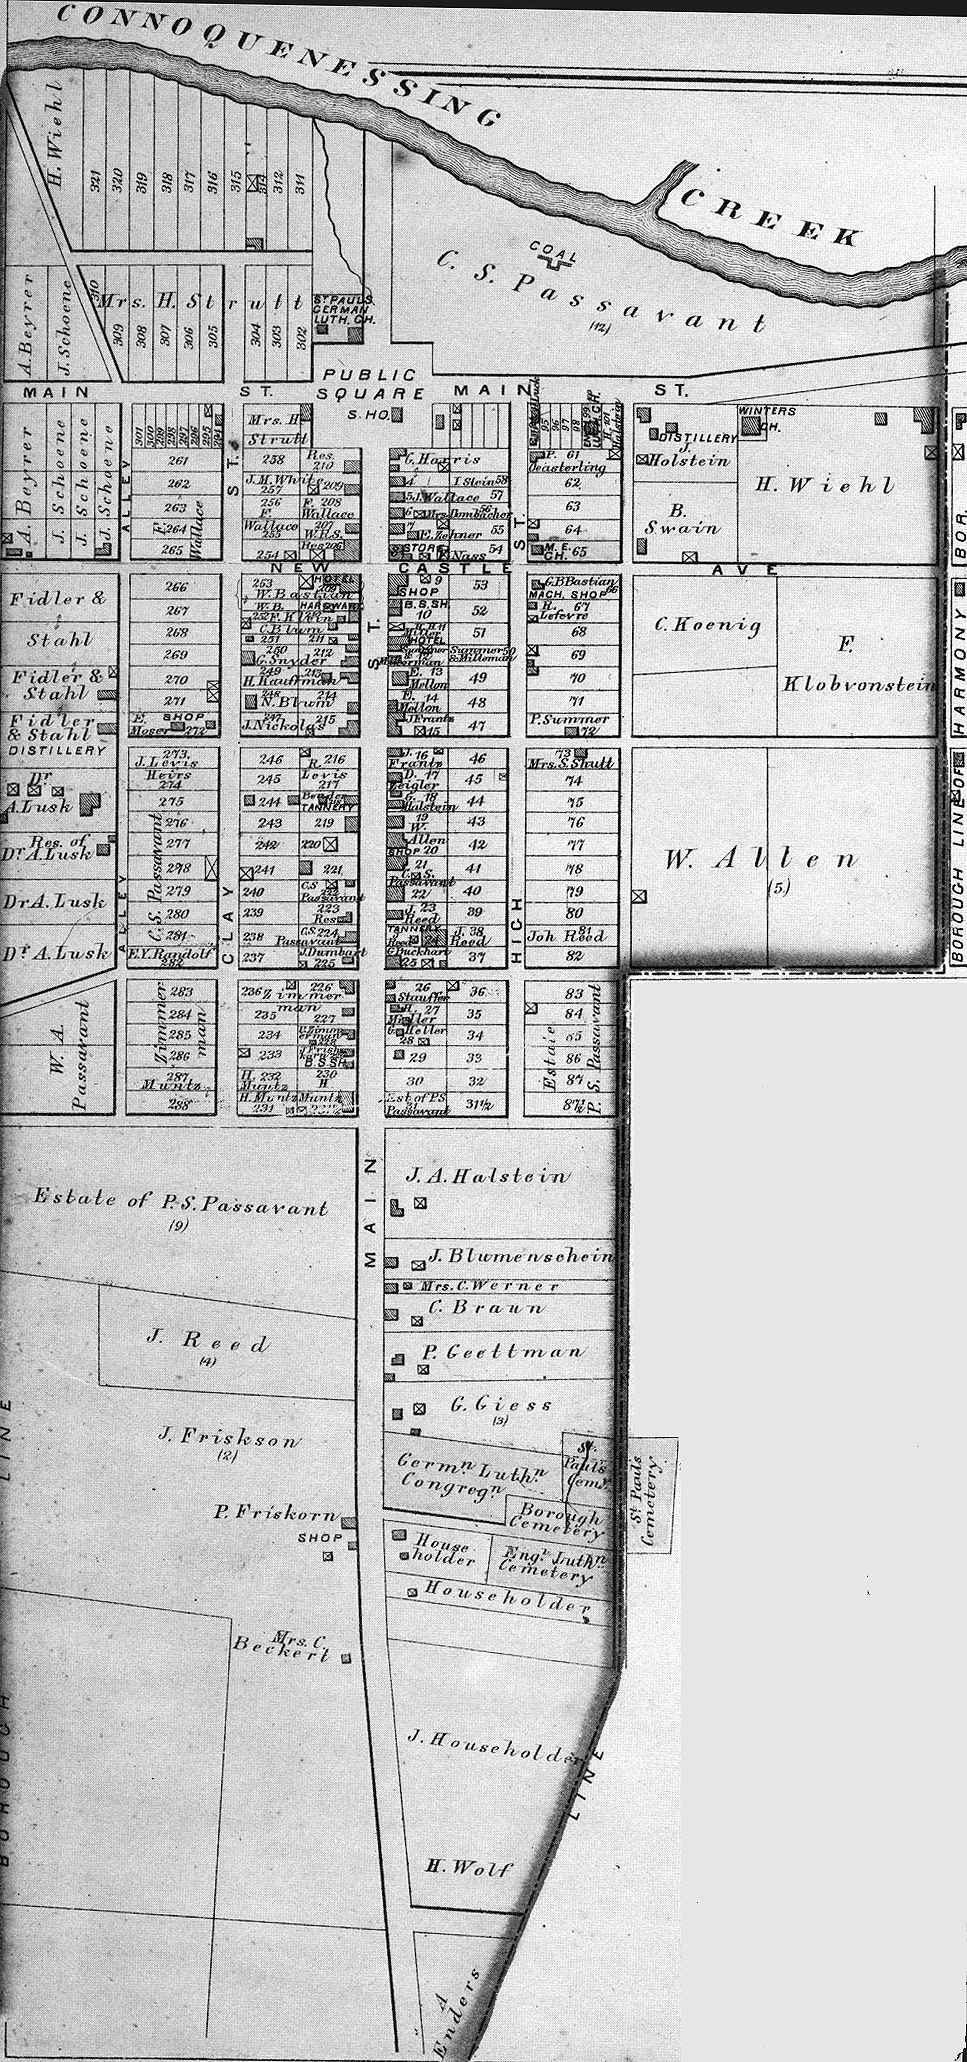 CONNOQUENESSING
CREEK
H. Wiehl
321
320
319
318
317
316
315
313
312
311
COAL
C. S. Passavant
(12)
A. Beyrer
J. Schoene
310
Mrs. H. Strutt
309
308
307
306
305
304
303
302
ST PAULS
GERMAN
LUTH. CH.
PUBLIC
SQUARE
MAIN
ST.
MAIN
ST.
S. HO.
A. Beyrer
J. Schoene
J. Schoene
J. Schoene
ALLEY
301
300
299
298
297
296
295
294
261
262
263
264
265
F. Wallace
ST.
Mrs. H.
Strutt
258
Res.
210
J. M. White
257
209
256
F. 208
F. Wallace
Wallace
255
207
W.R.S.
254
Res 206
G. Harris
4
I Stein 58
5 J. Wallace 57
6 Mrs. Dombacher 56
7
E. Zehner 55
STORE
Nass 54
95
96
97
98
P. 61
Oeasterling
62
63
64
M. E.
CH. 65
DISTILLERY
J.
Holstein
B.
Swain
WINTERS
CH.
H. Wiehl
NEW CASTLE AVE
Fidler &
Stahl
Fidler &
Stahl
Fidler
& Stahl
DISTILLERY
266
267
268
269
270
271
E. SHOP
Moser 272
253
HOTEL
W. Bastian
W. B.
HARDWARE
252 F. Klein
C. Blum
251
211
250
212
G. Snyder
249
213
H. Kauffman
248
214
N. Blum
247
215
J. Nickolas
9
SHOP
B.S.SH.
10
HOTEL
E. 13
Mellon
E. 14
Mellon
J. Frantz
15
53
52
51
Summer 50
& Milleman
49
48
47
G. B Bastian
MACH. SHOP 66
H. 67
Lefevre
68
69
70
71
P. Summer
72
C. Koenig
F.
Klobvonstein
ST.
Dr
A. Lusk
Res. of
Dr A. Lusk
Dr A. Lusk
Dr A. Lusk
273
J. Levis
Heirs
274
275
276
277
278
279
280
281
C. S. Passavant
E. Y. Randolf
282
ALLEY
CLAY
246
245
244
243
242
241
240
239
238
237
R. 216
Levis
217
Bender
TANNERY
219
220
221
C.S.
222
Passavant
223
Res
C.S. 224
Passavant
J. Dumbart
225
J. 16
Frantz
D. 17
Zeigler
G. 18
Halstein
19
W.
Allen
SHOP 20
21
C. S.
Passavant
22
J. 23
Reed
TANNERY
J. Reed 24
G. Buckhart
25
46
45
44
43
42
41
40
39
J. 38
Reed
37
HIGH
ST.
73
Mrs. S. Shutt
74
75
76
77
78
79
80
81
Joh Reed
82
W. Allen
(5)
BOROUGH LINE OF HARMONY BOR.
W. A.
Passavant
283
284
285
286
Zimmerman
287
Muntz
288
236 Zimmerman
235
234
233
H. 232
Muntz
H. Muntz
231
226
227
C. Zimmerman
228
J. Frishkorn
B.S.SH.
230
H
Muntz
26
Stauffer
H. 27
Muller
G. Heller
28
29
30
Est of P.S.
31
Passavant
36
35
34
33
32
31½
83
84
85
86
87
87½
Estate P. S. Passavant
MAIN
Estate of P. S. Passavant
(9)
J. A. Halstein
J. Blumenschein
Mrs. C. Werner
C. Braun
J. Reed
(4)
P. Geettman
G. Giess
(3)
J. Friskson
(2)
Germn Luthn
Congregn
St.
Pauls
Cemy
St Pauls
Cemetery
Borough
Cemetery
P. Friskorn
SHOP
House
holder
Engr Luthn
Cemetery
Householder
Mrs. C.
Beckert
J. Householder
H. Wolf
A
Enders
BOROUGH LINE
LINE